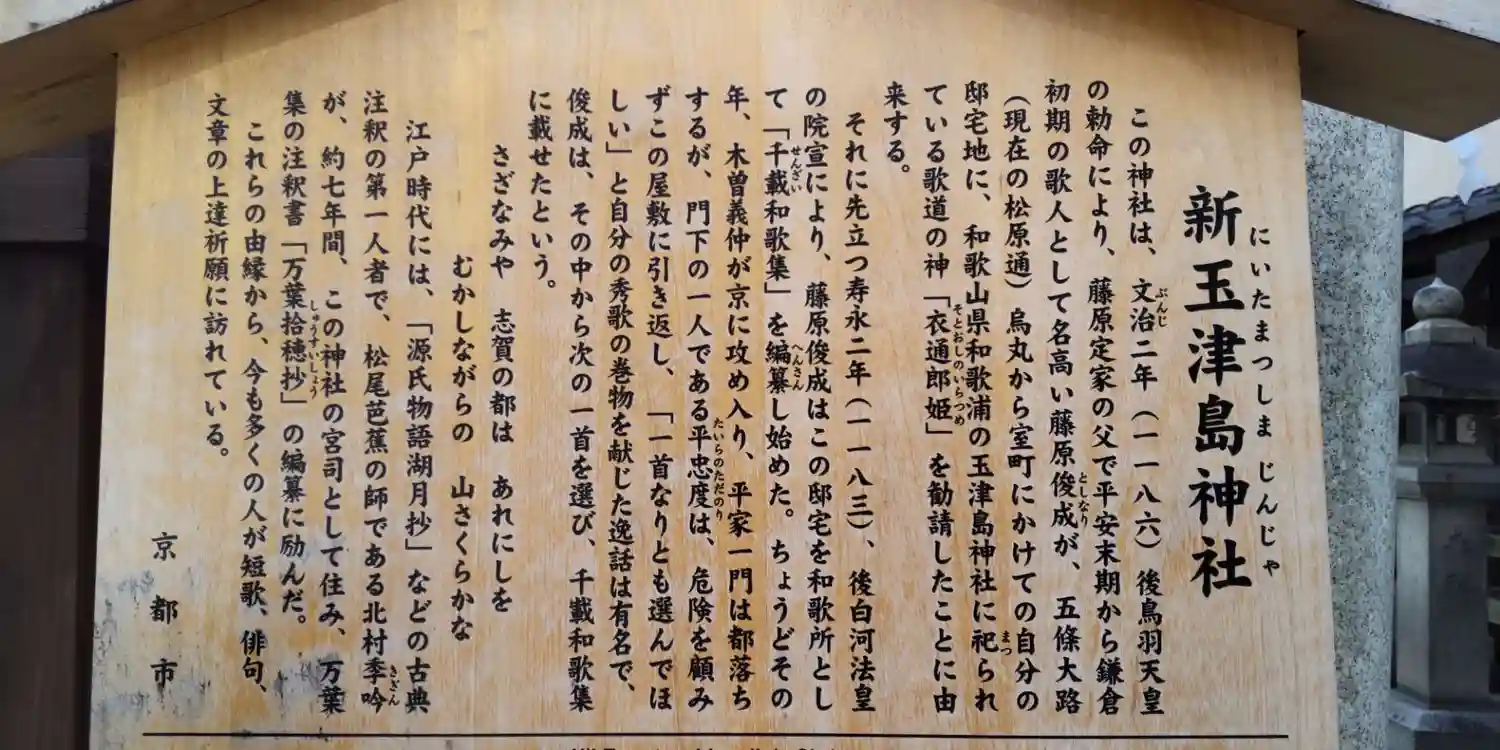 にいたまつしまじんじゃ
新玉津島神社
この神社は、文治二年（一一八六）後鳥羽天皇
の勅命により、藤原定家の父で平安末期から鎌倉
初期の歌人として名高い藤原俊成が、五條大路
（現在の松原通）烏丸から室町にかけての自分の
邸宅地に、和歌山県和歌浦の玉津島神社に祀られ
ている歌道の神「衣通郎姫」を勧請したことに由
来する。
それに先立つ寿永二年（一一八三）、後白河法皇
の院宣により、藤原俊成はこの邸宅を和歌所とし
て「千載和歌集」を編纂し始めた。ちょうどその
年、木曽義仲が京に攻め入り、平家一門は都落ち
するが、門下の一人である平忠度は、危険を顧み
ずこの屋敷に引き返し、「一首なりとも選んでほ
しい」と自分の秀歌の巻物を献じた逸話は有名で、
俊成は、その中から次の一首を選び、千載和歌集
に載せたという。
さざなみや　志賀の都は　あれにしを
むかしながらの　山さくらかな
江戸時代には、「源氏物語湖月抄」などの古典
注釈の第一人者で、松尾芭蕉の師である北村季吟
が、約七年間、この神社の宮司として住み、万葉
集の注釈書「万葉拾穂抄」の編纂に励んだ。
これらの由縁から、今も多くの人が短歌、俳句、
文章の上達祈願に訪れている。
京都市